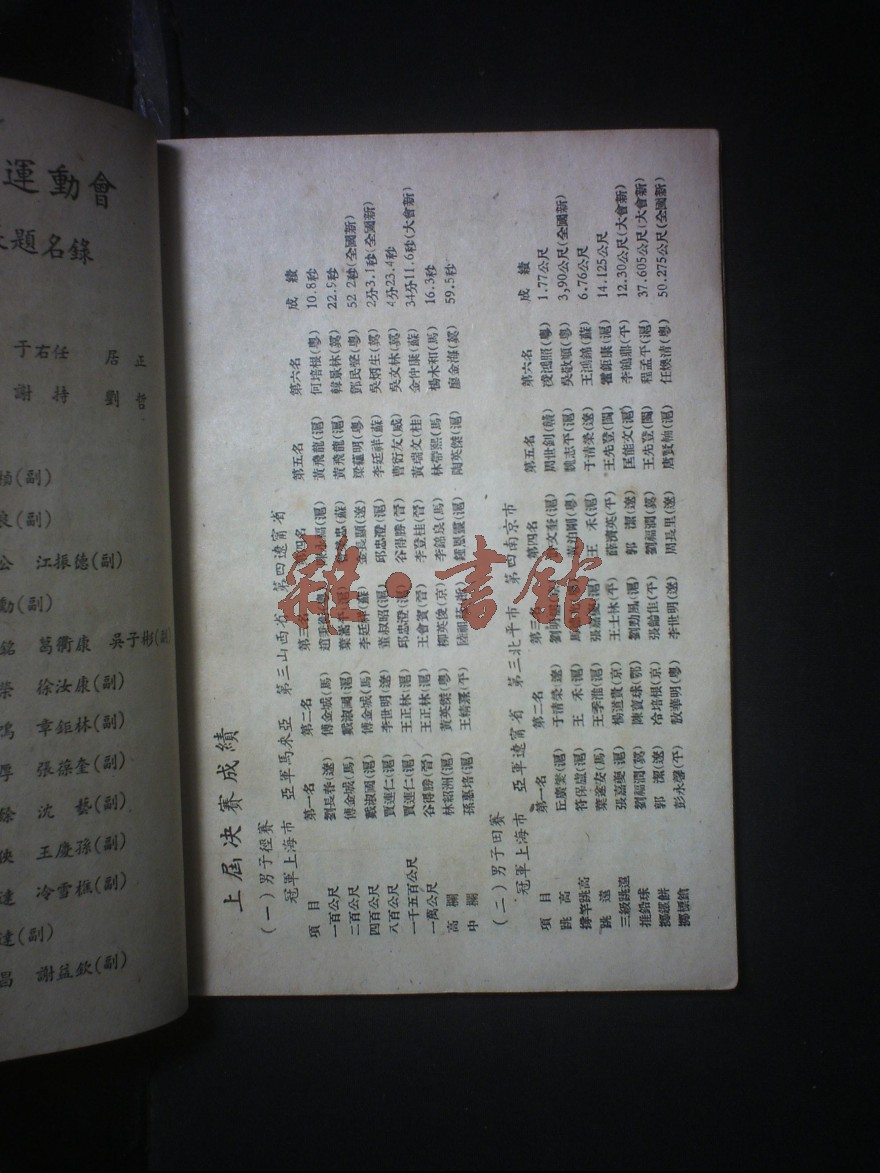 運動會
題名錄
于右任 居正
謝持 劉哲
(副)
良(副)
公 江振德(副)
勳(副)
銘 葛衢康 吳子彬(副)
榮 徐汝康(副)
鴻 章鉅林(副)
張葆奎(副)
沈藝(副)
俠 王慶孫(副)
達 冷雪樵(副)
達(副)
昌 謝益欽(副)
上屆決賽成績
(一)男子徑賽
冠軍上海市 亞軍馬來亞 第三山西省 第四遼甯省
項目 第一名 第二名 第三名 第四名 第五名 第六名 成績
一百公尺 劉長春(遼) 傅金城(馬) 黃飛龍(滬) 何培根(粵) 10.8秒
二百公尺 傅金城(馬) 戴淑國(滬) 黃飛龍(滬) 韓景林(冀) 22.9秒
四百公尺 戴淑國(滬) 傅金城(馬) 李廷祥(蘇) 金長顯(遼) 梁蘊明(粵) 鄧民瑩(粵) 52 2秒(全國新)
八百公尺 賈連仁(滬) 李世明(遼) 董叔昭(滬) 邱忠澄(滬) 李廷祥(蘇) 吳炳生(冀) 2分3.1秒(全國新)
一千五百公尺 賈連仁(滬) 王正林(滬) 邱忠澄(滬) 谷得勝(晉) 曹衍友(威) 吳文林(冀) 4分23.4秒
一萬公尺 谷得勝(晉) 王正林(滬) 王會賓(晉) 李登桂(晉) 黃瑞文(桂) 金仲康(蘇) 34分11.6秒(大會新)
高欄 林紹洲(滬) 黃英傑(粵) 柳英俊(京) 李錦良(馬) 林帶熙(馬) 楊木和(馬) 16.3秒
中欄 孫惠培(滬) 王精熹(平) 鍾恩靈(滬) 陶英傑(滬) 廖金海(冀) 59.5秒
(二)男子田賽
冠軍上海市 亞軍遼甯省 第三北平市 第四南京市
項目 第一名 第二名 第三名 第四名 第五名 第六名 成績
跳高 丘廣燮(滬) 于清榮(遼) 周世釗(贛) 凌鴻照(粵) 1.77公尺
撐竿跳高 符保盧(滬) 王禾(滬) 黃柏爾(粵) 魏志平(滬) 吳敬順(粵) 3,90公尺(全國新)
跳遠 王季淮(滬) 張嘉夔(滬) 王禾(滬) 于清榮(遼) 王鴻錦(蘇) 6,76公尺
三級跳遠 張嘉夔(滬) 楊道貴(京) 王士林(平) 薛濟英(平) 王先登(閩) 霍鉅康(滬) 14.125公尺
推鉛球 劉福潤(冀) 陳寶球(鄂) 劉勁風(滬) 郭潔(遼) 匡能文(滬) 李鶴鼎(平) 12.30公尺(大會新)
擲鐵餅 郭潔(遼) 冷培根(京) 張齡佳(平) 劉福潤(冀) 王先登(閩) 程孟平(滬) 37.605公尺(大會新)
擲標鎗 彭永馨(平) 李世明(遼) 周長里(遼) 唐賢翰(滬) 任煥清(粵) 50.275公尺(全國新)
雜·書館